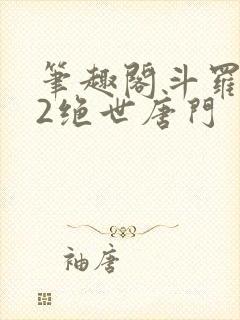 筆趣閣斗羅
2绝世唐門
袖唐